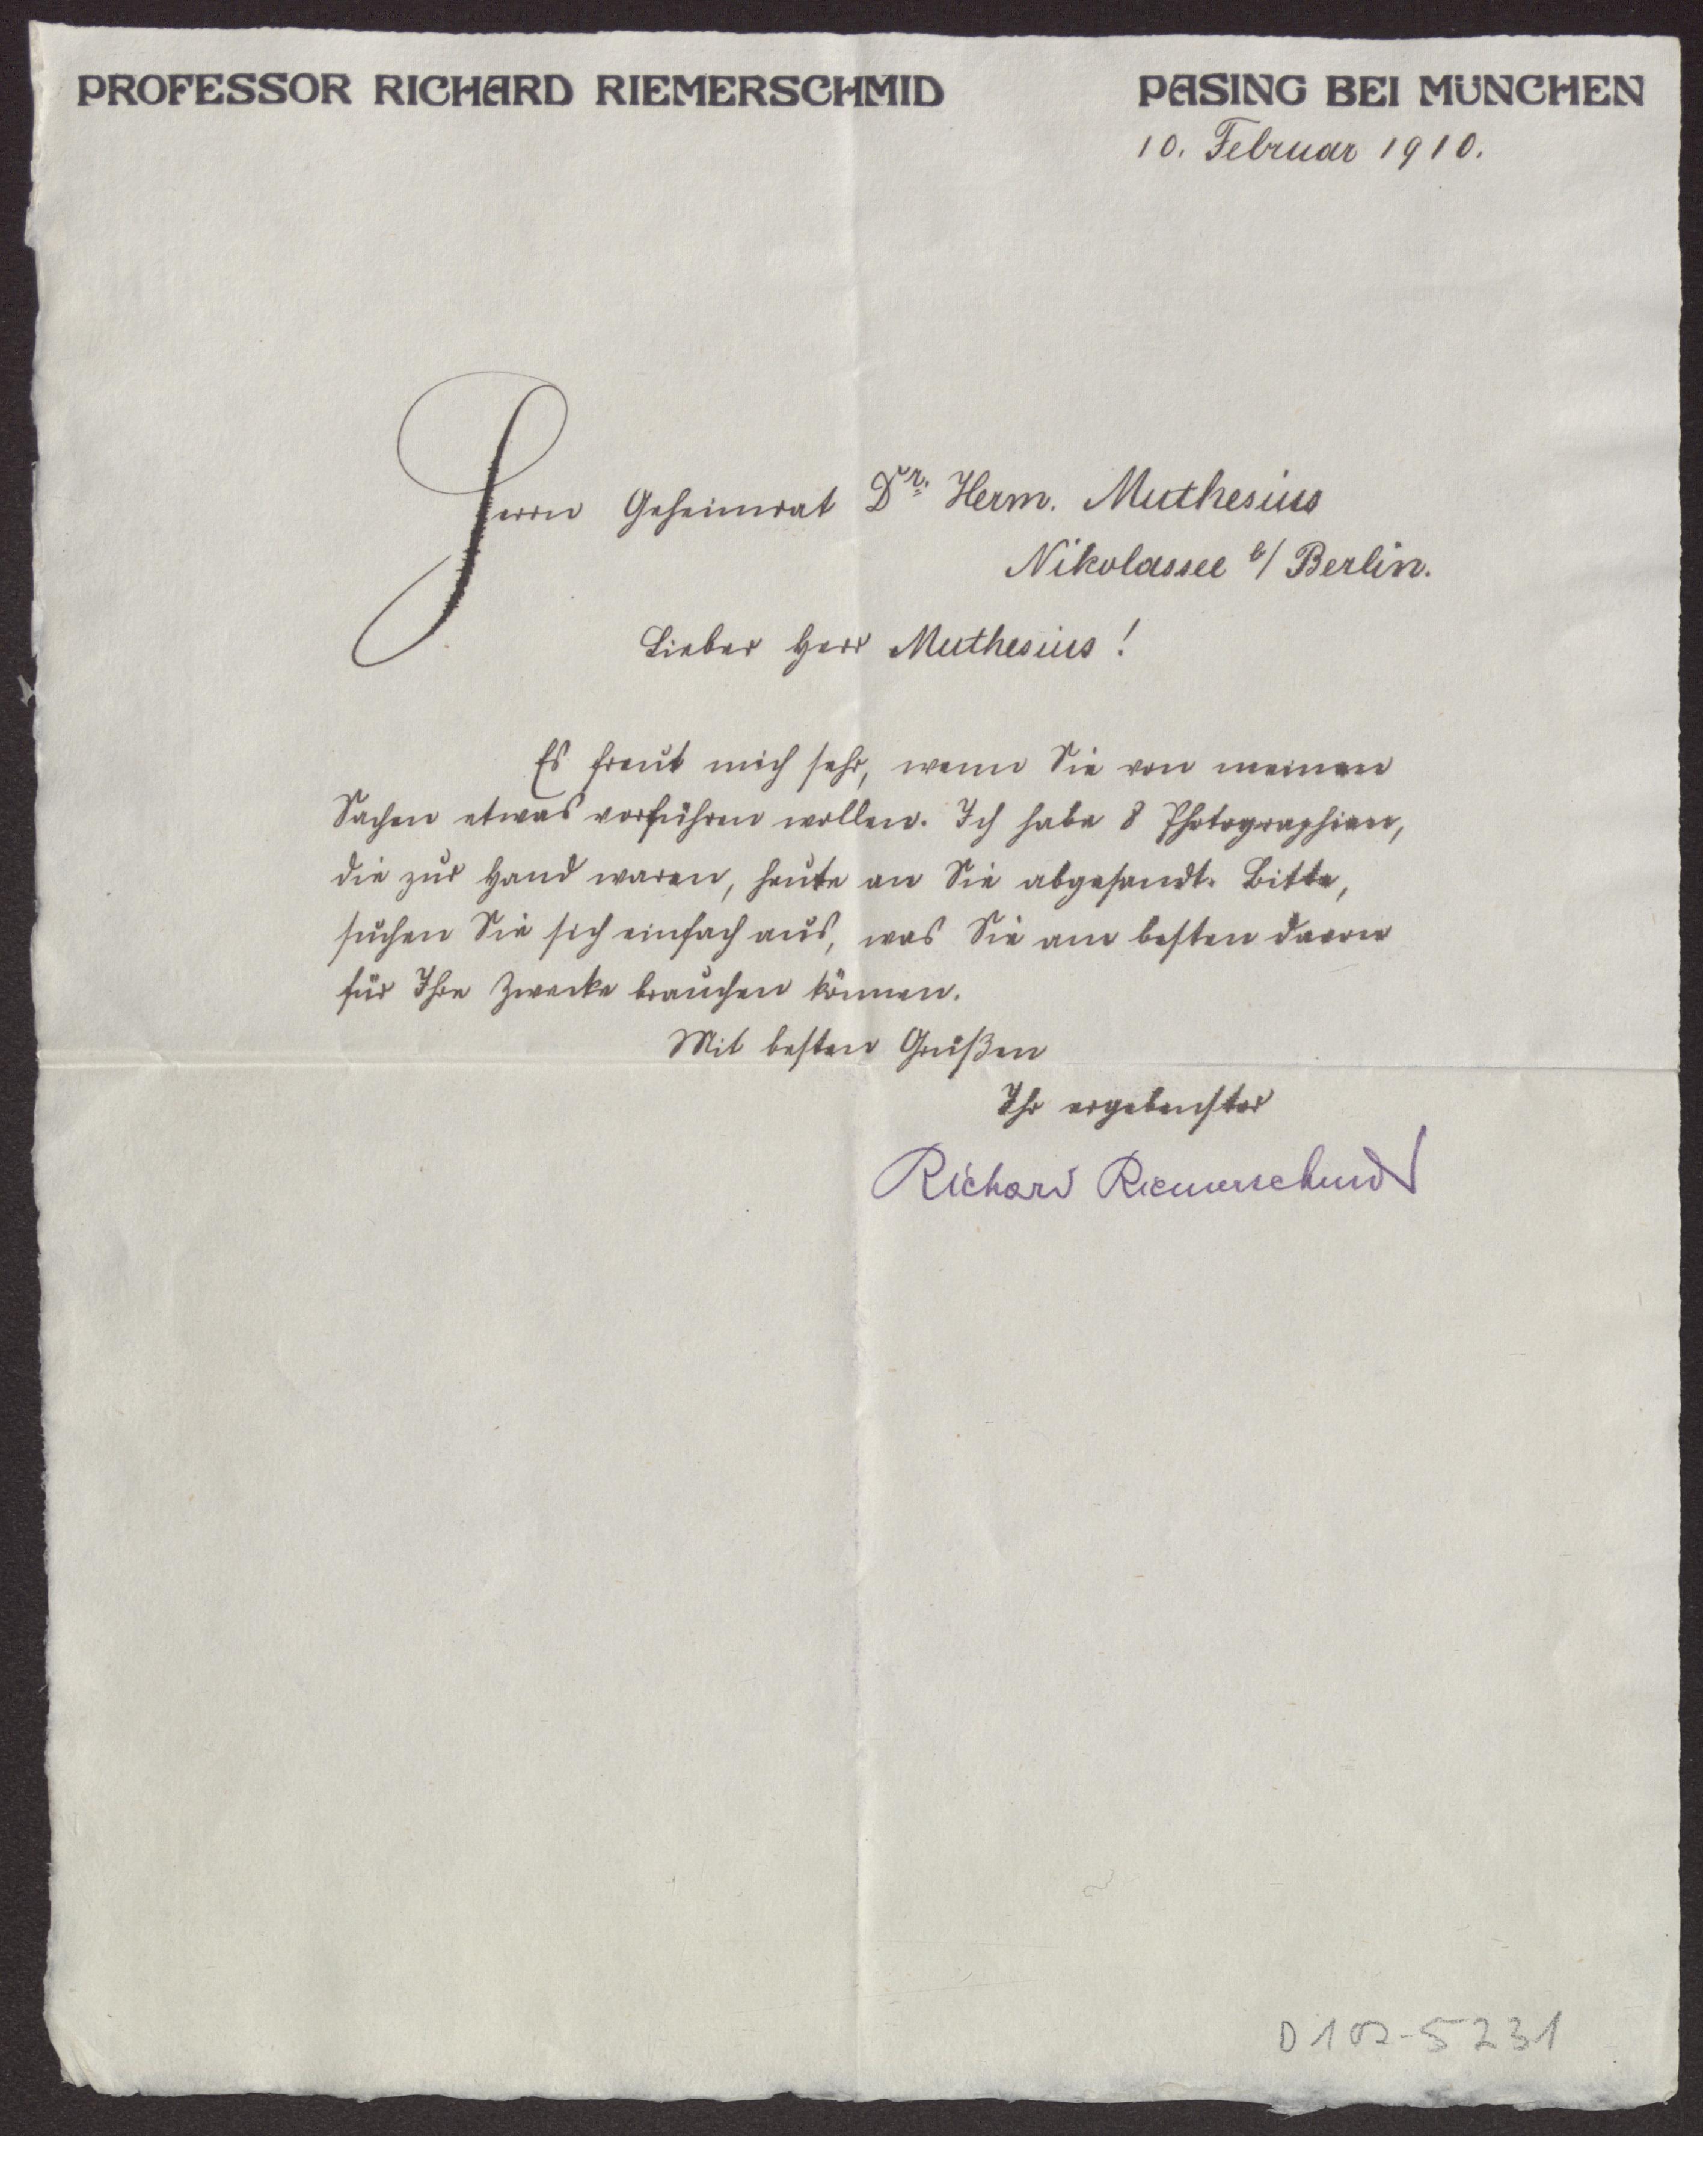 PROFESSOR RICHARD RIEMERSCHMID PASING BEI MÜNCHEN
10. Februar 1910.
Herrn Geheimrat Dr. Herm. Muthesius
Nikolassee b/ Berlin.
Lieber Herr Muthesius!
Es freut mich sehr, wenn Sie von meinen
Sachen etwas vorführen wollen. Ich habe 8 Photographien,
die zur Hand waren, heute an Sie abgesandt. Bitte,
suchen Sie sich einfach aus, was Sie am besten davon
für Ihre Zwecke brauchen können.
Mit besten Grüßen
Ihr ergebenster
Richard Riemerschmid
D 102-5231